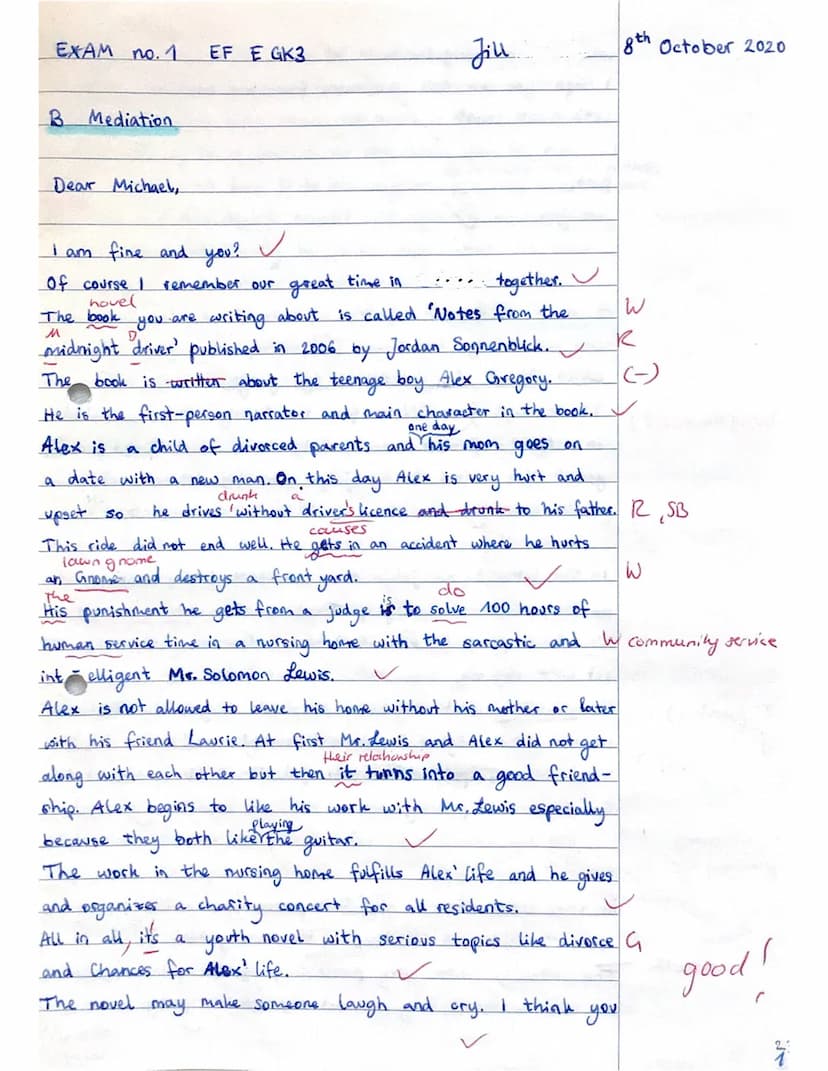 EXAM no. 1 EF E GK3 Jill 8th October 2020
B Mediation
Dear Michael,
I am fine and you? ✓
Of course I remember our great time in ..... together. ✓
novel
The book you are writing about is called 'Notes from the W
M D
midnight driver' published in 2006 by Jordan Sonnenblick. ✓ R
The book is written about the teenage boy Alex Gregory. (-)
He is the first-person narrator and main character in the book. ✓
one day
Alex is a child of divorced parents and his mom goes on
a date with a new man. On this day Alex is very hurt and
drunk a
upset so he drives without driver's licence and drunk to his father. R, SB
causes
This ride did not end well. He gets in an accident where he hurts
lawn gnome
an Gnome and destroys a front yard. ✓ W
The is do
His punishment he gets from a judge is to solve 100 hours of
human service time in a nursing home with the sarcastic and W community service
intelligent Mr. Solomon Lewis. ✓
Alex is not allowed to leave his home without his mother or later
with his friend Laurie. At first Mr. Lewis and Alex did not get
their relationship
along with each other but then it turns into a good friend-
ship. Alex begins to like his work with Mr. Lewis especially
playing
because they both like the guitar. ✓
The work in the nursing home fulfills Alex' life and he gives
and organizes a charity concert for all residents. ✓
All in all, it's a youth novel with serious topics like divorce G
and Chances for Alex' life. ✓ good!
The novel may make someone laugh and cry. I think you
✓